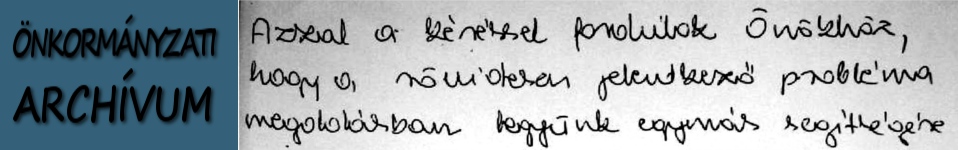 ÖNKORMÁNYZATI
ARCHÍVUM
Azzal a kéréssel fordulok Önökhöz,
hogy a rövidesen jelentkező probléma
megoldásban legyünk egymás segítségére